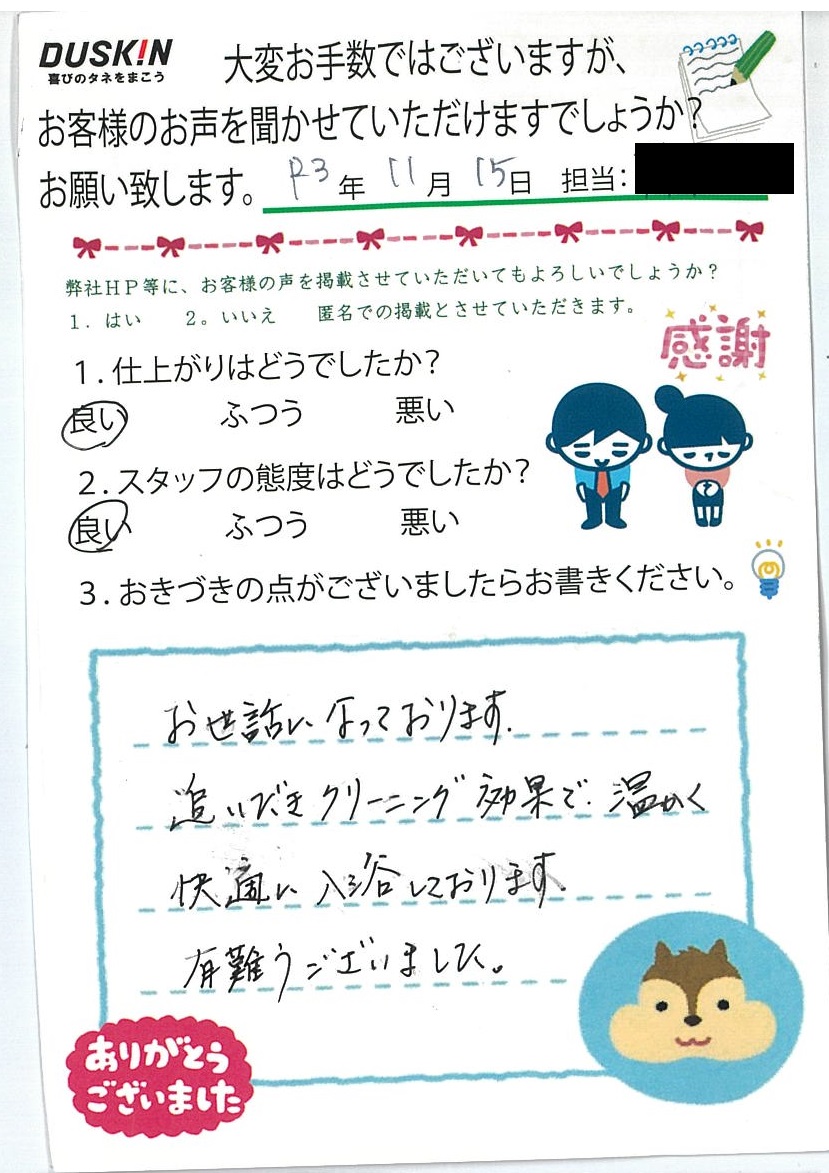 DUSKIN
喜びのタネをまこう
大変お手数ではございますが、
お客様のお声を聞かせていただけますでしょうか?
お願い致します。 R3年 11月 15日 担当:
弊社HP等に、お客様の声を掲載させていただいてもよろしいでしょうか?
1. はい 2。いいえ 匿名での掲載とさせていただきます。
感謝
1.仕上がりはどうでしたか?
良い ふつう 悪い
2.スタッフの態度はどうでしたか?
良い ふつう 悪い
3.おきづきの点がございましたらお書きください。
お世話になっております.
追いだきクリーニング効果で、温かく
快適に入浴しております.
有難うございました。
ありがとう
ございました